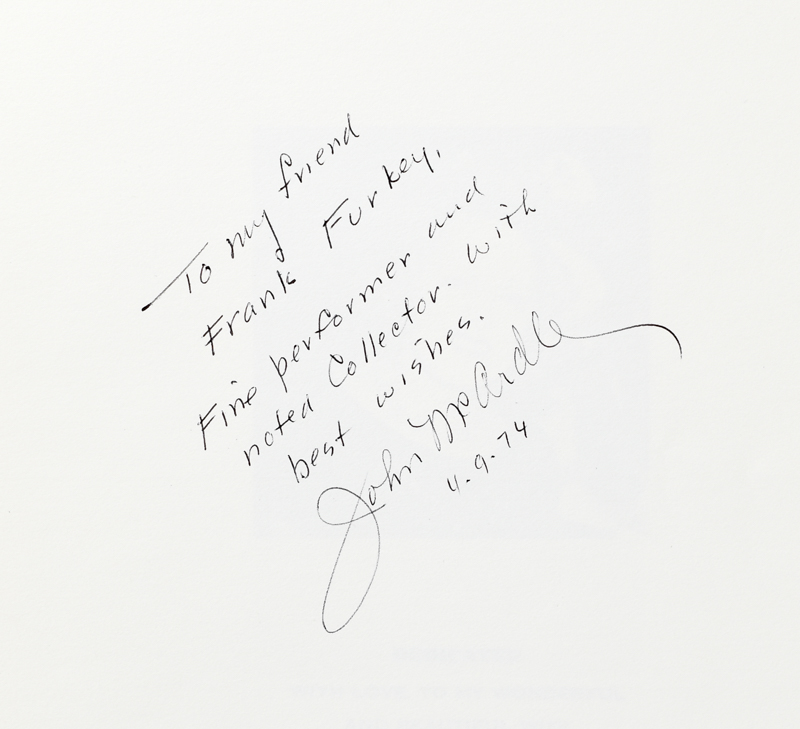 To my friend
Frank Furkey,
Fine performer and
noted Collector. With
best wishes.
John McArdle
4.9.74